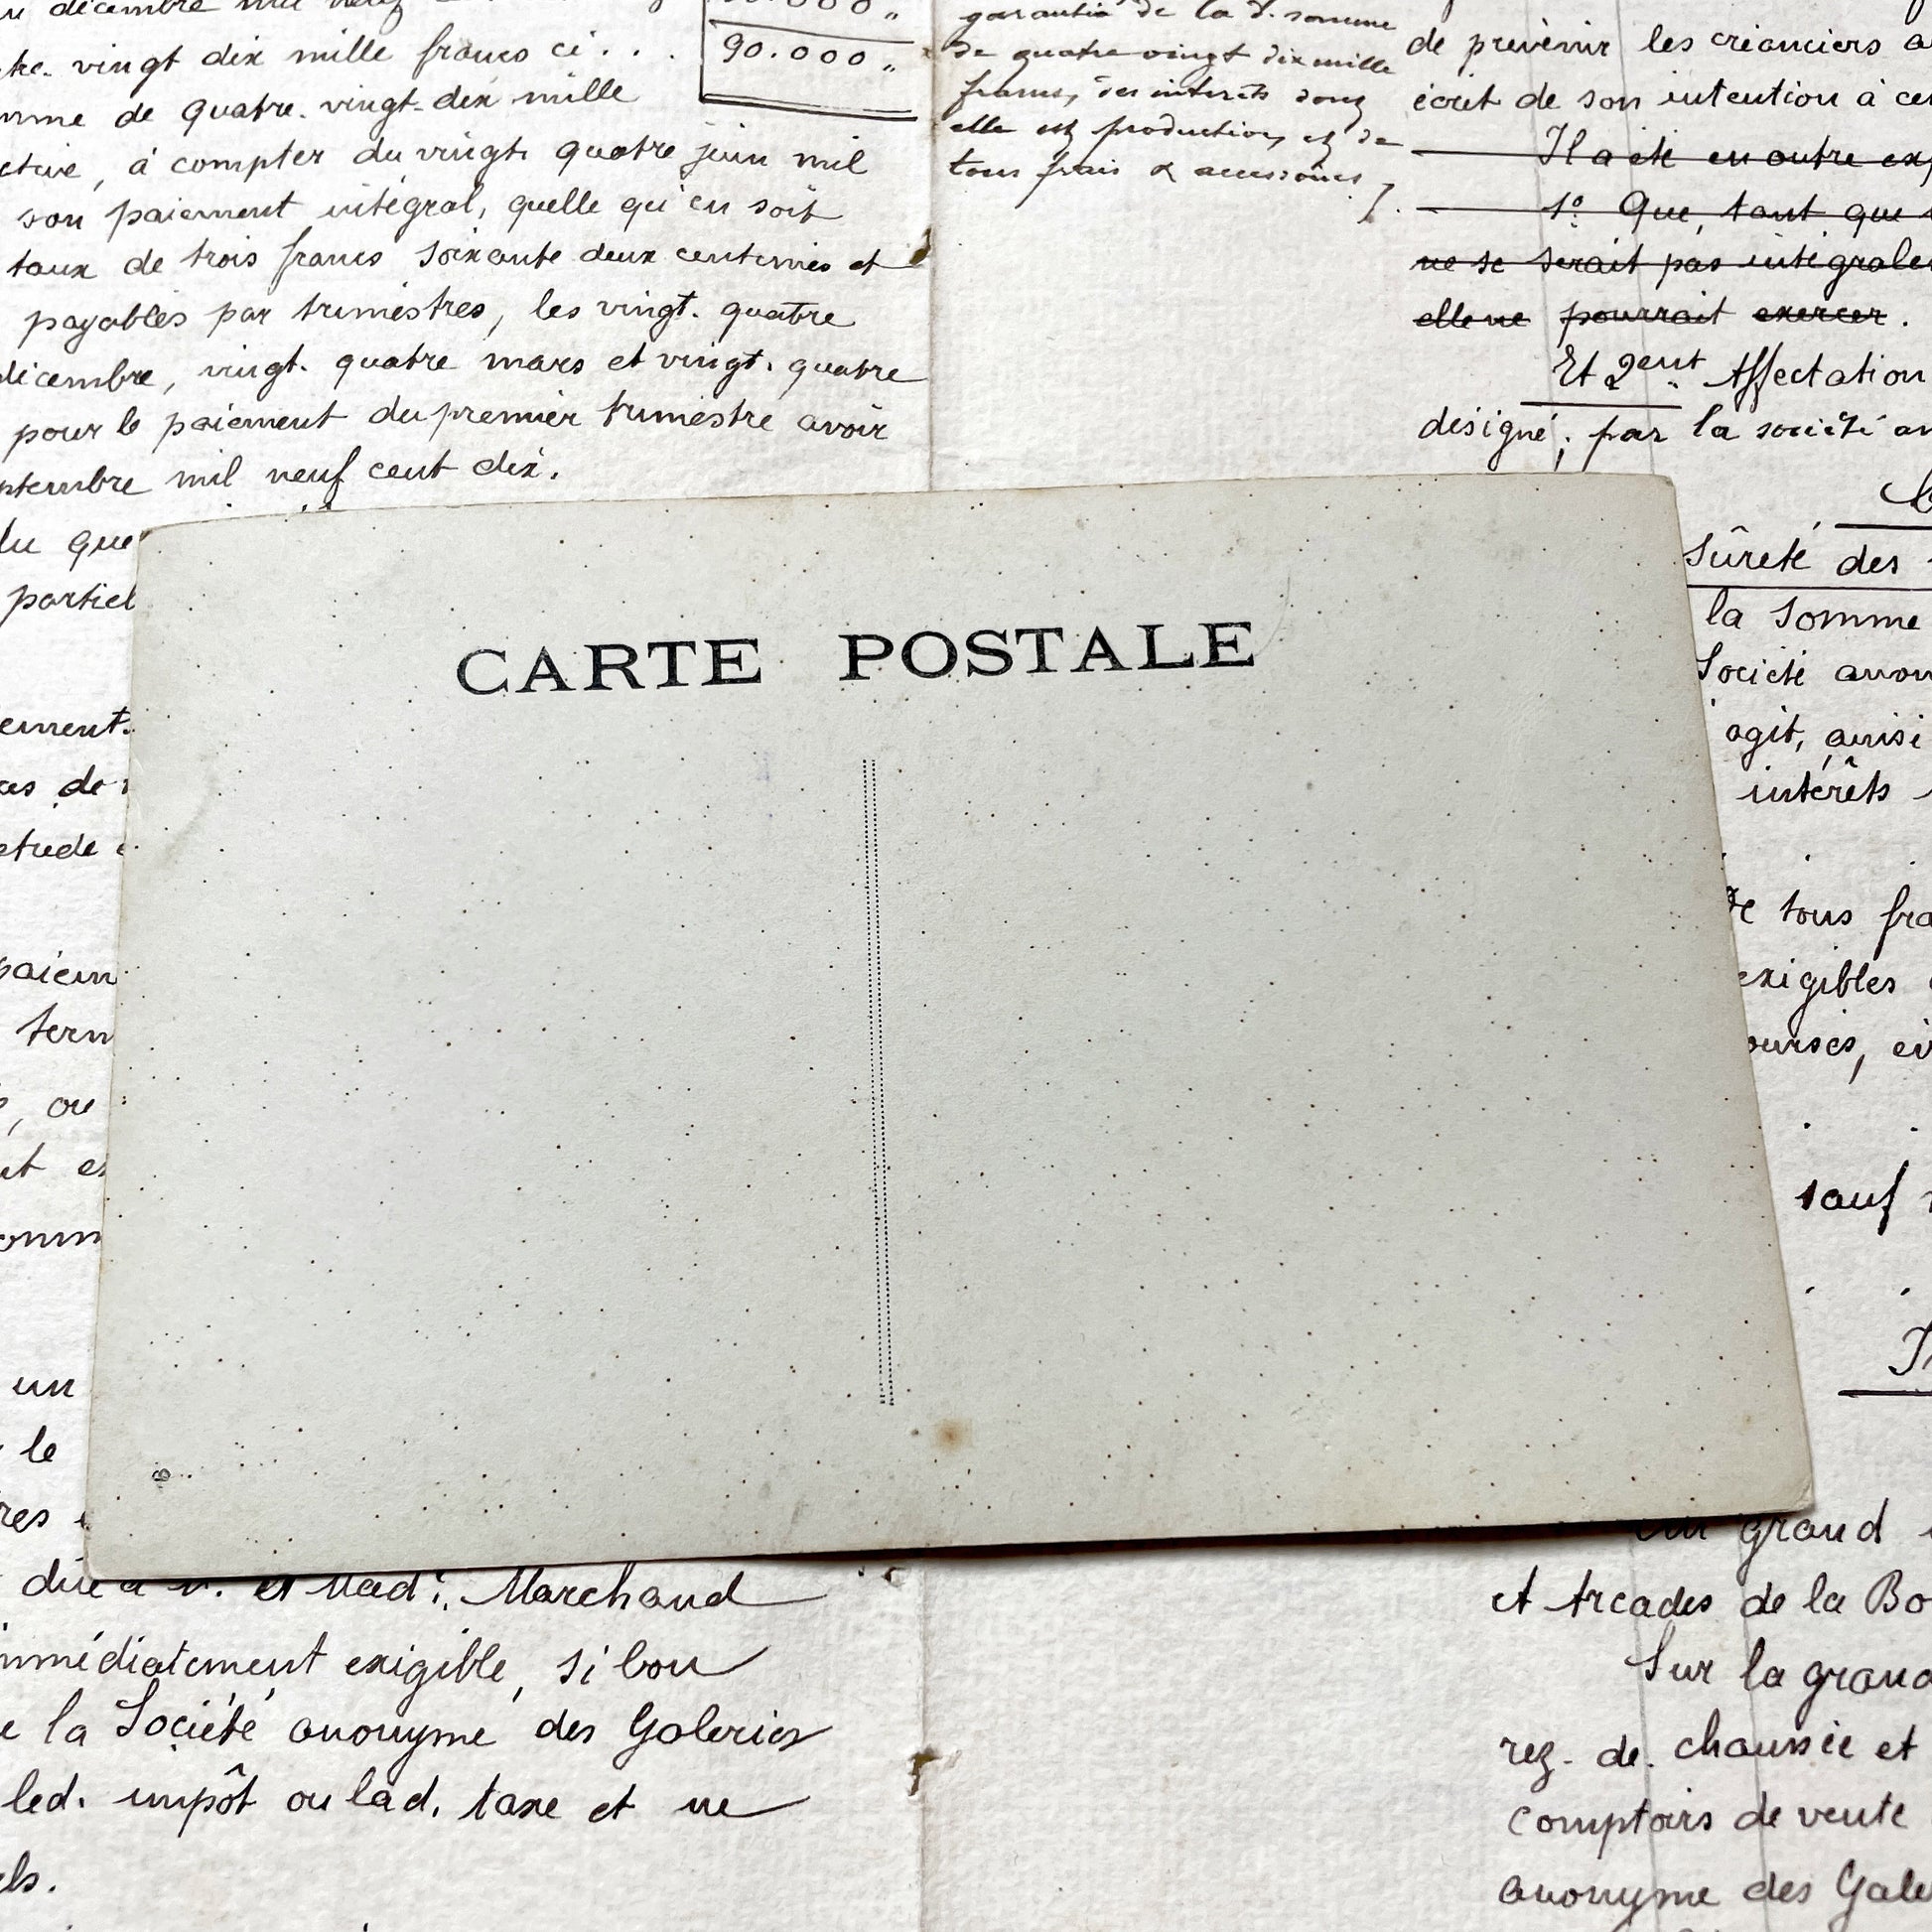 décembre mil neuf
vingt dix mille francs ci . . . 90.000 „
de quatre. vingt-dix mille
, à compter du vingt. quatre juin mil
son paiement intégral, quelle qu'en soit
taux de trois francs soixante deux centimes et
payables par trimestres, les vingt. quatre
décembre, vingt. quatre mars et vingt. quatre
pour le paiement du premier trimestre avoir
mil neuf cent dix.
du que
partiel
de
un
le
Marchand
immédiatement exigible, si bon
la Société anonyme des Galeries
led. impôt ou lad. taxe et ne
garantie de la d. somme
de quatre vingt dix mille
francs, des intérêts dont
elle est productive, et de
tous frais & accessoires
de prévenir les créanciers
écrit de son intention à
Il a été en outre
1° Que, tant que
ne se serait pas
elle ne pourrait exercer.
Et 2ent Affectation
désigné; par la société
CARTE POSTALE
Sûreté des
la somme
Société
agit, ainsi
intérêts
de tous
exigibles
sauf
grand
et Arcades de la
Sur la
rez. de. chaussée et
comptoirs de vente
anonyme des